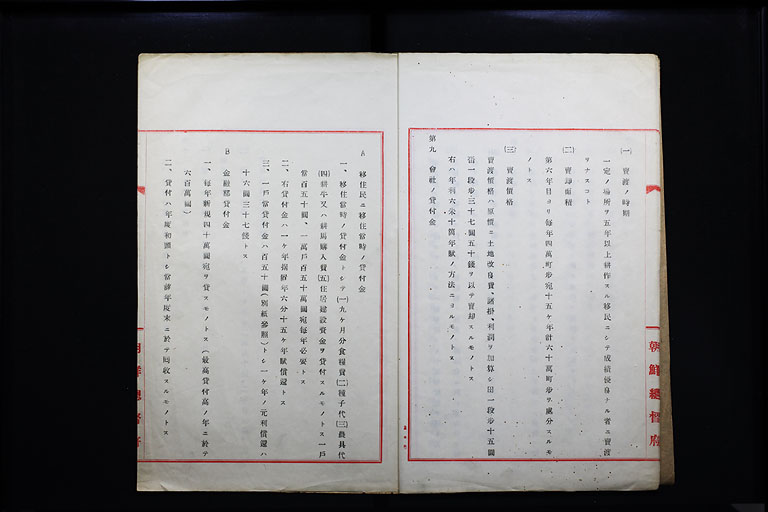 (一) 賣渡ノ時期
一定ノ場所ヲ五年以上耕作スル移民ニシテ成績優良ナル者ニ賣渡
リナスコト
(二) 賣却面積
第六年目ヨリ毎年四萬町步宛十五ヶ年計六十萬町步ヲ處分スルモ
ノトス
(三) 賣渡價格
賣渡價格ハ原價ニ土地改良費、諸掛、利潤ヲ加算シ田一段步十五圓
畓一段步三十七圓五十錢ヲ以テ賣却スルモノトス
右ハ年利六朱十箇年賦ノ方法ニヨルモノトス
第九 會社ノ貸付金
朝鮮總督府
A 移住民ニ移住當時ノ貸付金
一、移住當時ノ貸付金トシテ(一)九ヶ月分食糧費(二)種子代(三)農具代
(四)耕牛又ハ耕馬購入費(五)住居建設資金ヲ貸付スルモノトス一戶
當百五十圓、一萬戶百五十萬圓宛毎年必要トス
二、右貸付金ハ一ヶ年据置年六分十五ヶ年賦償還トス
三、一戶當貸付金ハ百五十圓(別紙參照)トシ一ヶ年ノ元利償還ハ
十六圓三十七錢トス
B 金融部貸付金
一、毎年新規四十萬圓宛ヲ貸スモノトス(最高貸付高ノ年ニ於テ
六百萬圓)
二、貸付ハ年度初頭トシ當該年度末ニ於テ回收スルモノトス
朝鮮總督府